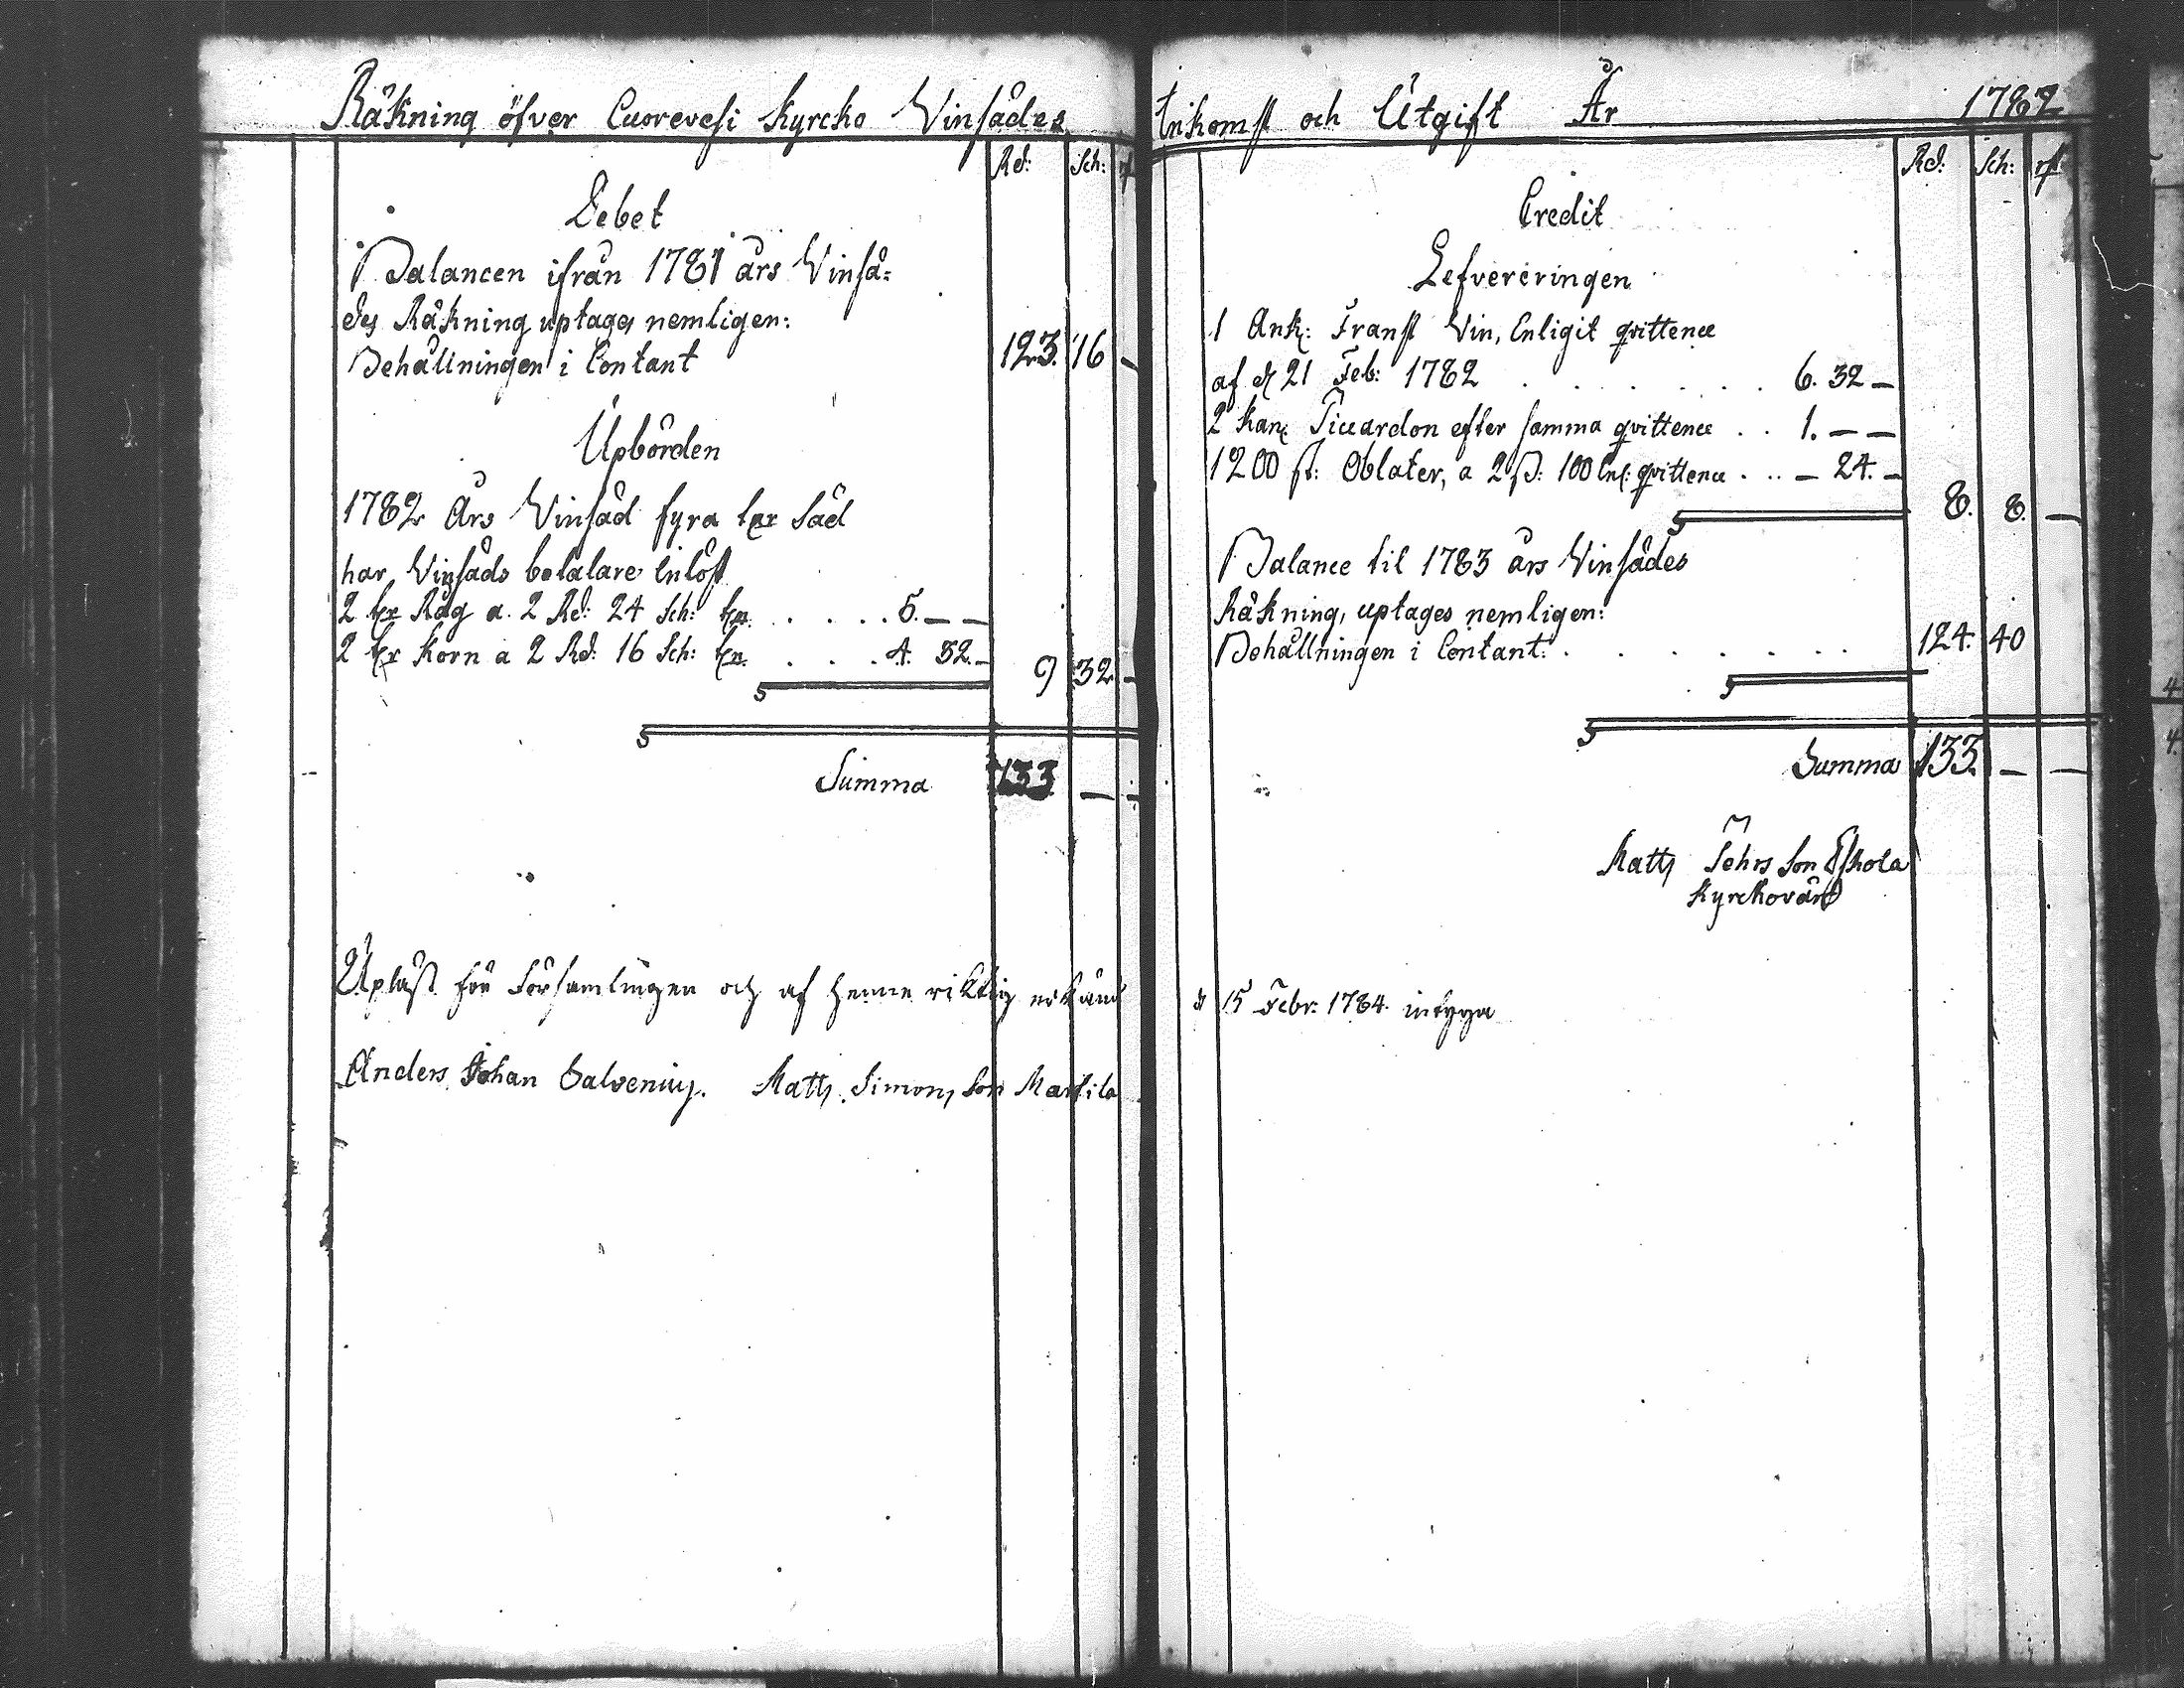 Räkning öfver Cuorevesi Kyrcko Vinsädes
Rd: Sch:
Debet
Balancen ifrån 1781 års Vinsä=
des Räkning uptages nemligen:
Behållningen i Contant 123. 16 —
Upbörden
1782 Års Vinsäd fyra tr Säd
har Vinsäds betalare inlöst
2 tr Råg a. 2 Rd: 24 Sch: tn. . . . . . 5. — —
2 tr Korn a 2 Rd: 16 Sch: tn. . . . 4. 32. — 9 32 —
Summa 133. — —
Upläst för Församlingen och af henne riktig erkänd
Anders Johan Salvenius. Matts Simons Son Martila
Inkomst och Utgift År 1782
Rd: Sch:
Credit
Lefvereringen
1 Ank: Franst Vin, Enligit qvittence
af d 21 Feb: 1782 . . . . . . . 6. 32 —
2 Kan: Piccardon efter samma qvittence . . 1. — —
1200 st: Oblater, a 2 ß: 100 Enl: qvittence . . . — 24. —
8. 8. —
Balance til 1783 års Vinsädes
Räkning, uptages nemligen:
Behållningen i Contant: . . . . . . . 124. 40
Summa 133. — —
Matts Pehrs Son Eskola
Kyrckovärd
d 15 Febr: 1784. intyga